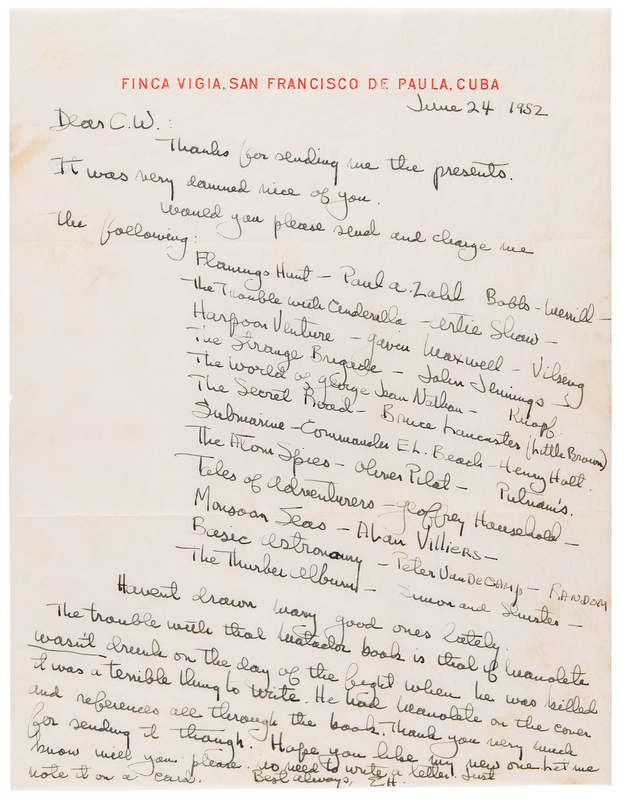 FINCA VIGIA, SAN FRANCISCO DE PAULA, CUBA
June 24 1952
Dear C.W.:
Thanks for sending me the presents.
It was very damned nice of you.
Would you please send and charge me
the following:
Flamingo Hunt - Paul A. Zahl Bobbs-Merrill -
The Trouble with Cinderella - Artie Shaw -
Harpoon Venture - Gavin Maxwell - Viking
The Strange Brigade - John Jennings
The World of George Jean Nathan - Knopf.
The Secret Road - Bruce Lancaster (Little Brown)
Submarine - Commander E.L. Beach - Henry Holt.
The Atom Spies - Oliver Pilat - Putnam's.
Tales of Adventurers - Geoffrey Household -
Monsoon Seas - Alan Villiers -
Basic Astronomy - Peter Van De Camp - RANDOM
The Thurber Album - Simon and Shuster -
Havent drawn many good ones lately.
The trouble with that Matador book is that if Manolete
wasn't drunk on the day of the fight when he was killed
it was a terrible thing to write. He had Manolete on the cover
and references all through the book. Thank you very much
for sending it though. Hope you like my new one. Let me
know will you please. No need to write a letter. Just
note it on a card. Best always, E.H.